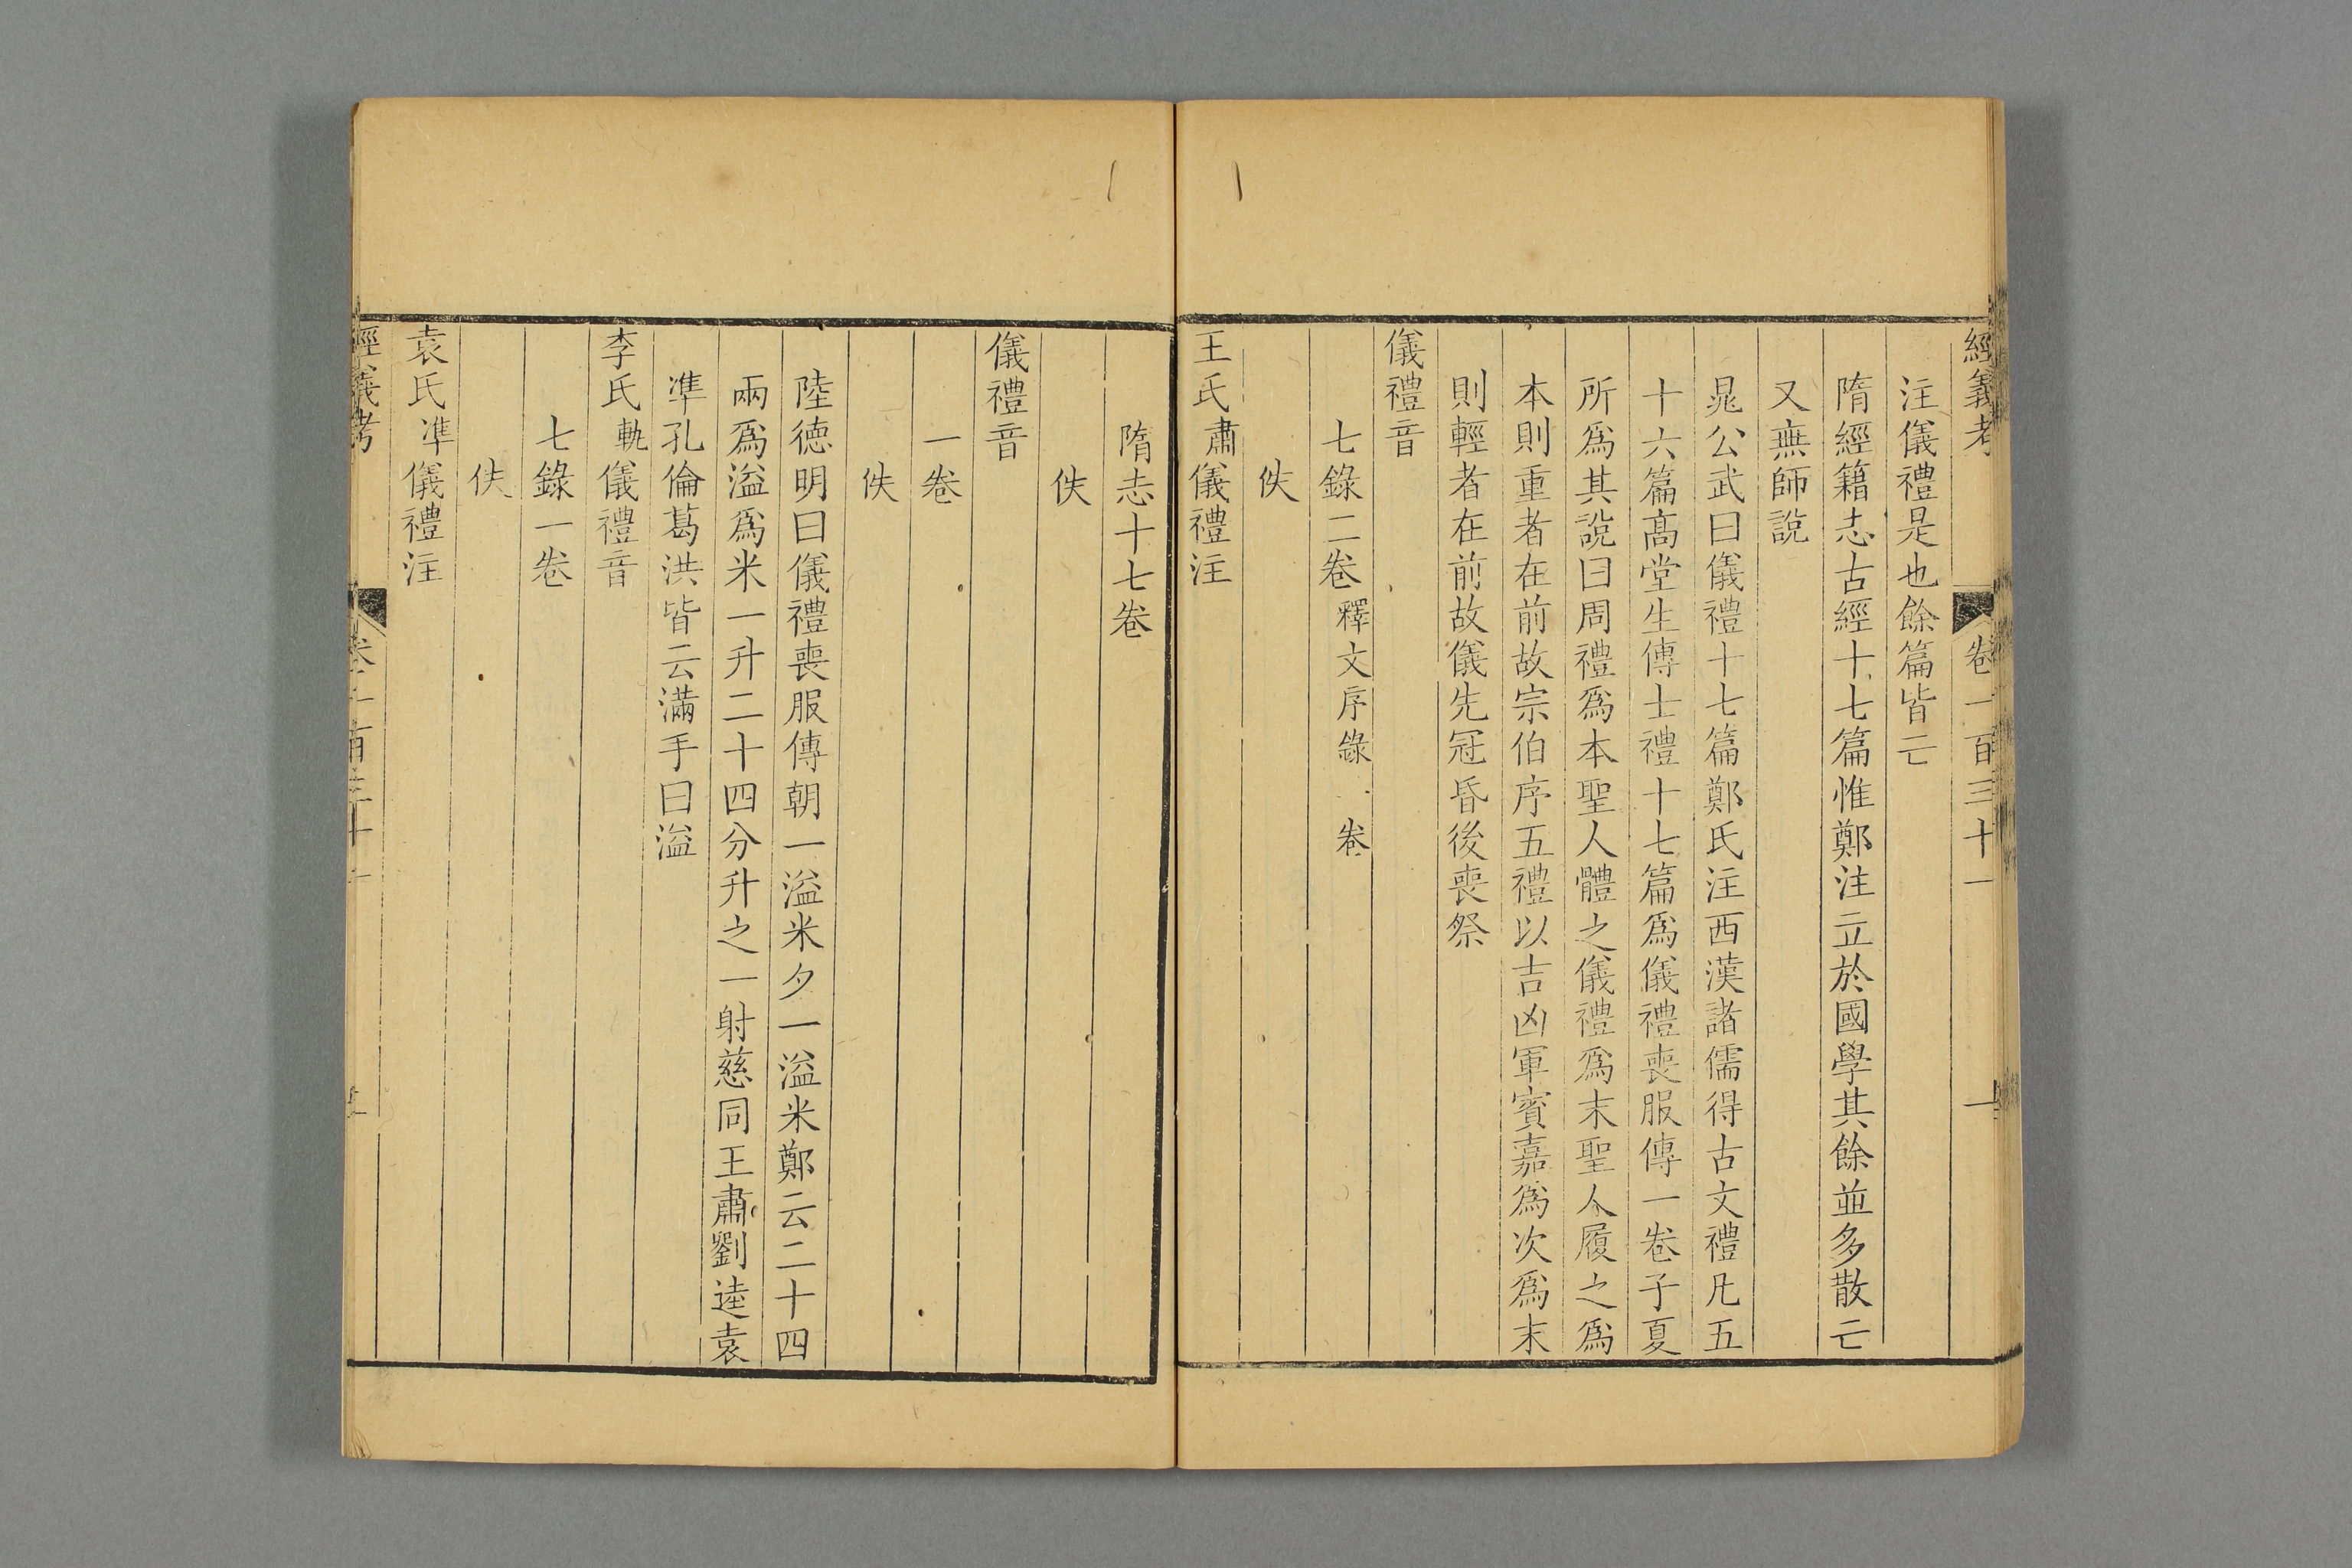 經義考 卷一百三十一 一
注儀禮是也餘篇皆亡
隋經籍志古經十七篇惟鄭注立於國學其餘並多散亡
又無師說
晁公武曰儀禮十七篇鄭氏注西漢諸儒得古文禮凡五
十六篇高堂生傳士禮十七篇爲儀禮喪服傳一卷子夏
所爲其說曰周禮爲本聖人體之儀禮爲末聖人履之爲
本則重者在前故宗伯序五禮以吉凶軍賓嘉爲次爲末
則輕者在前故儀先冠昏後喪祭
儀禮音
七錄二卷釋文序錄 卷
佚
王氏肅儀禮注
隋志十七卷
佚
儀禮音
一卷
佚
陸德明曰儀禮喪服傳朝一溢米夕一溢米鄭云二十四
兩爲溢爲米一升二十四分升之一射慈同王肅劉逵袁
準孔倫葛洪皆云滿手曰溢
李氏軌儀禮音
七錄一卷
佚
袁氏準儀禮注
經義考 卷一百三十一